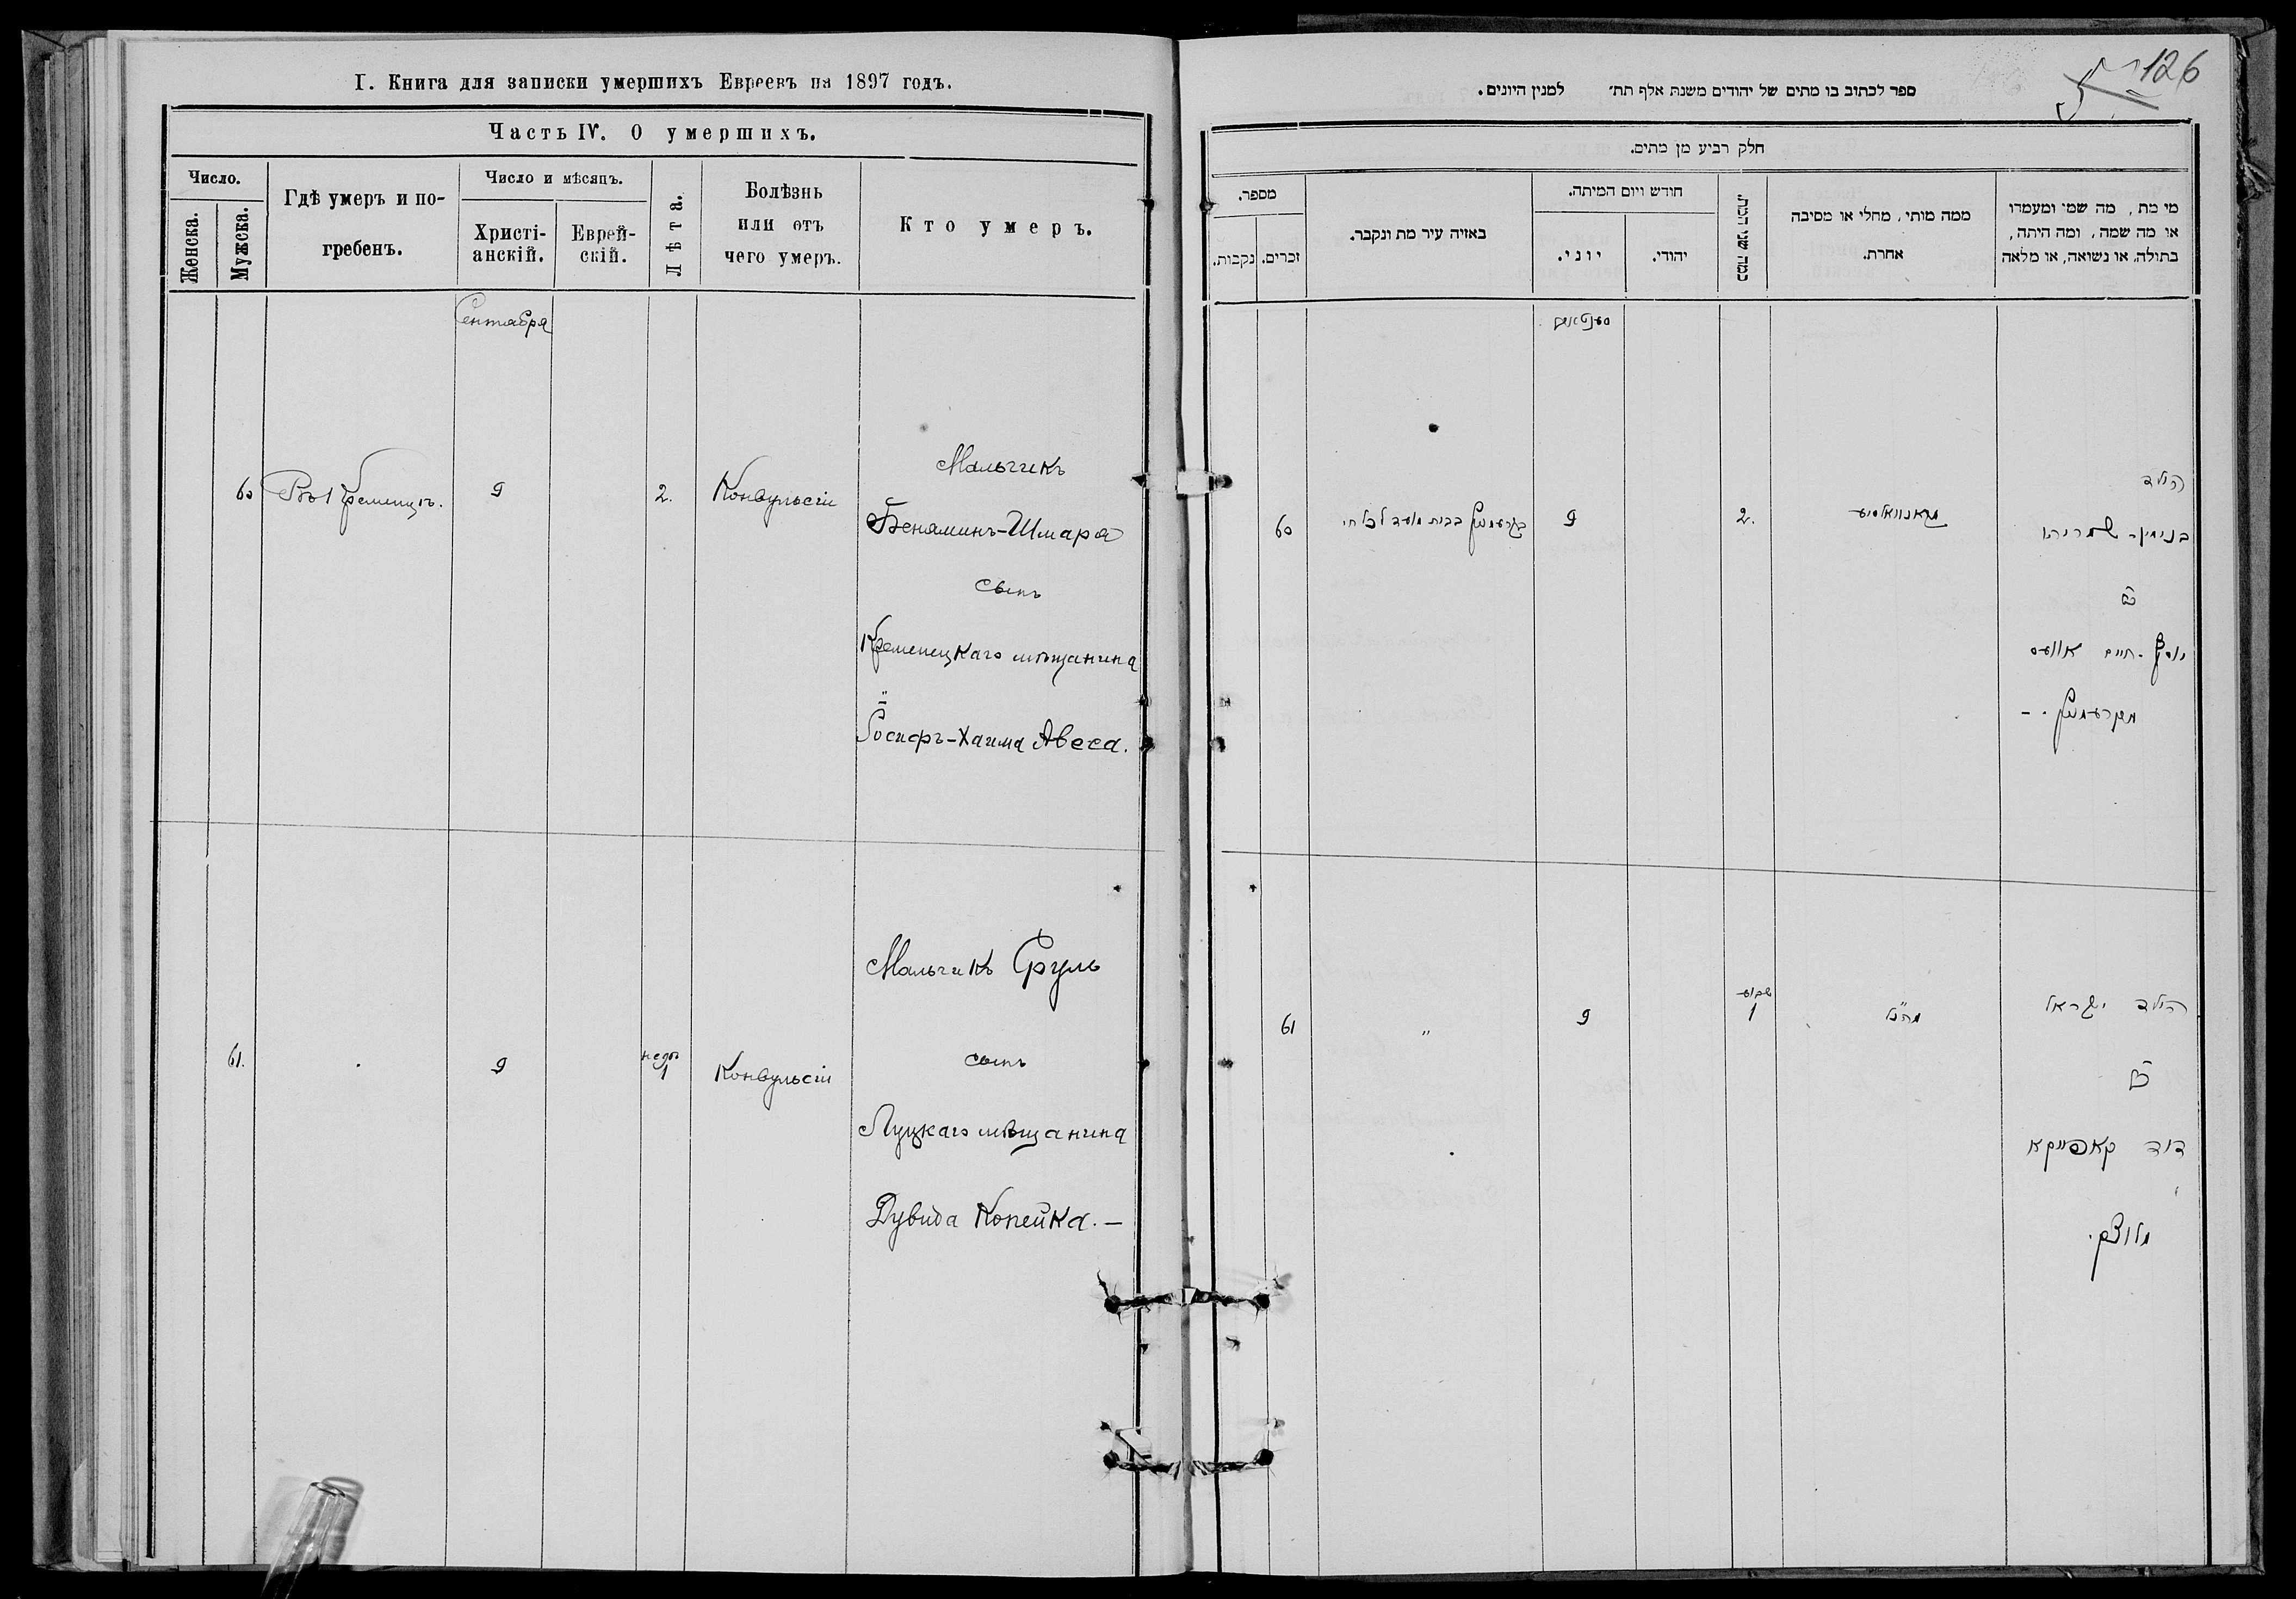 I. Книга для записки умершихъ Евреевъ на 1897 годъ.
Часть IV. О умершихъ.
Число.
Женска.
Мужска.
Гдѣ умеръ и по-
гребенъ.
Число и мѣсяцъ.
Христі-
анскій.
Еврей-
скій.
Лѣта.
Болѣзнь
или отъ
чего умеръ.
Кто умеръ.
Сентября
60 Въ Кременцѣ. 9 2. Конвульсіи
Мальчикъ
Беняминъ-Шмаря
сынъ
Кременецкаго мѣщанина
Іосифъ-Хаима Авеса.
61. 9 недѣл 1 Конвульсіи
Мальчикъ Сруль
сынъ
Луцкаго мѣщанина
Дувида Копейка. —
126
ספר לכתוב בו מתים של יהודים משנת אלף תת׳ למנין היונים.
חלק רביע מן מתים.
מספר.
נקבות.
זכרים.
באזיה עיר מת ונקבר.
חודש ויום המיתה.
יוני.
יהודי.
כמה שני המת.
ממה מותי, מחלי או מסיבה
אחרת.
מי מת, מה שמי ומעמדו
או מה שמה, ומה היתה,
בתולה, או נשואה, או מלאה
60 בקרעמניץ בבית מועד לכל חי 9 2. קאנוואלסיע
הילד
בנימין - שמריהו
בן
יוסף - חיים אוועס
מקרעמניץ. -
61 " 9 שבוע 1 מה״נ
הילד ישראל
בן
דוד קאפייקא
מלוצק.